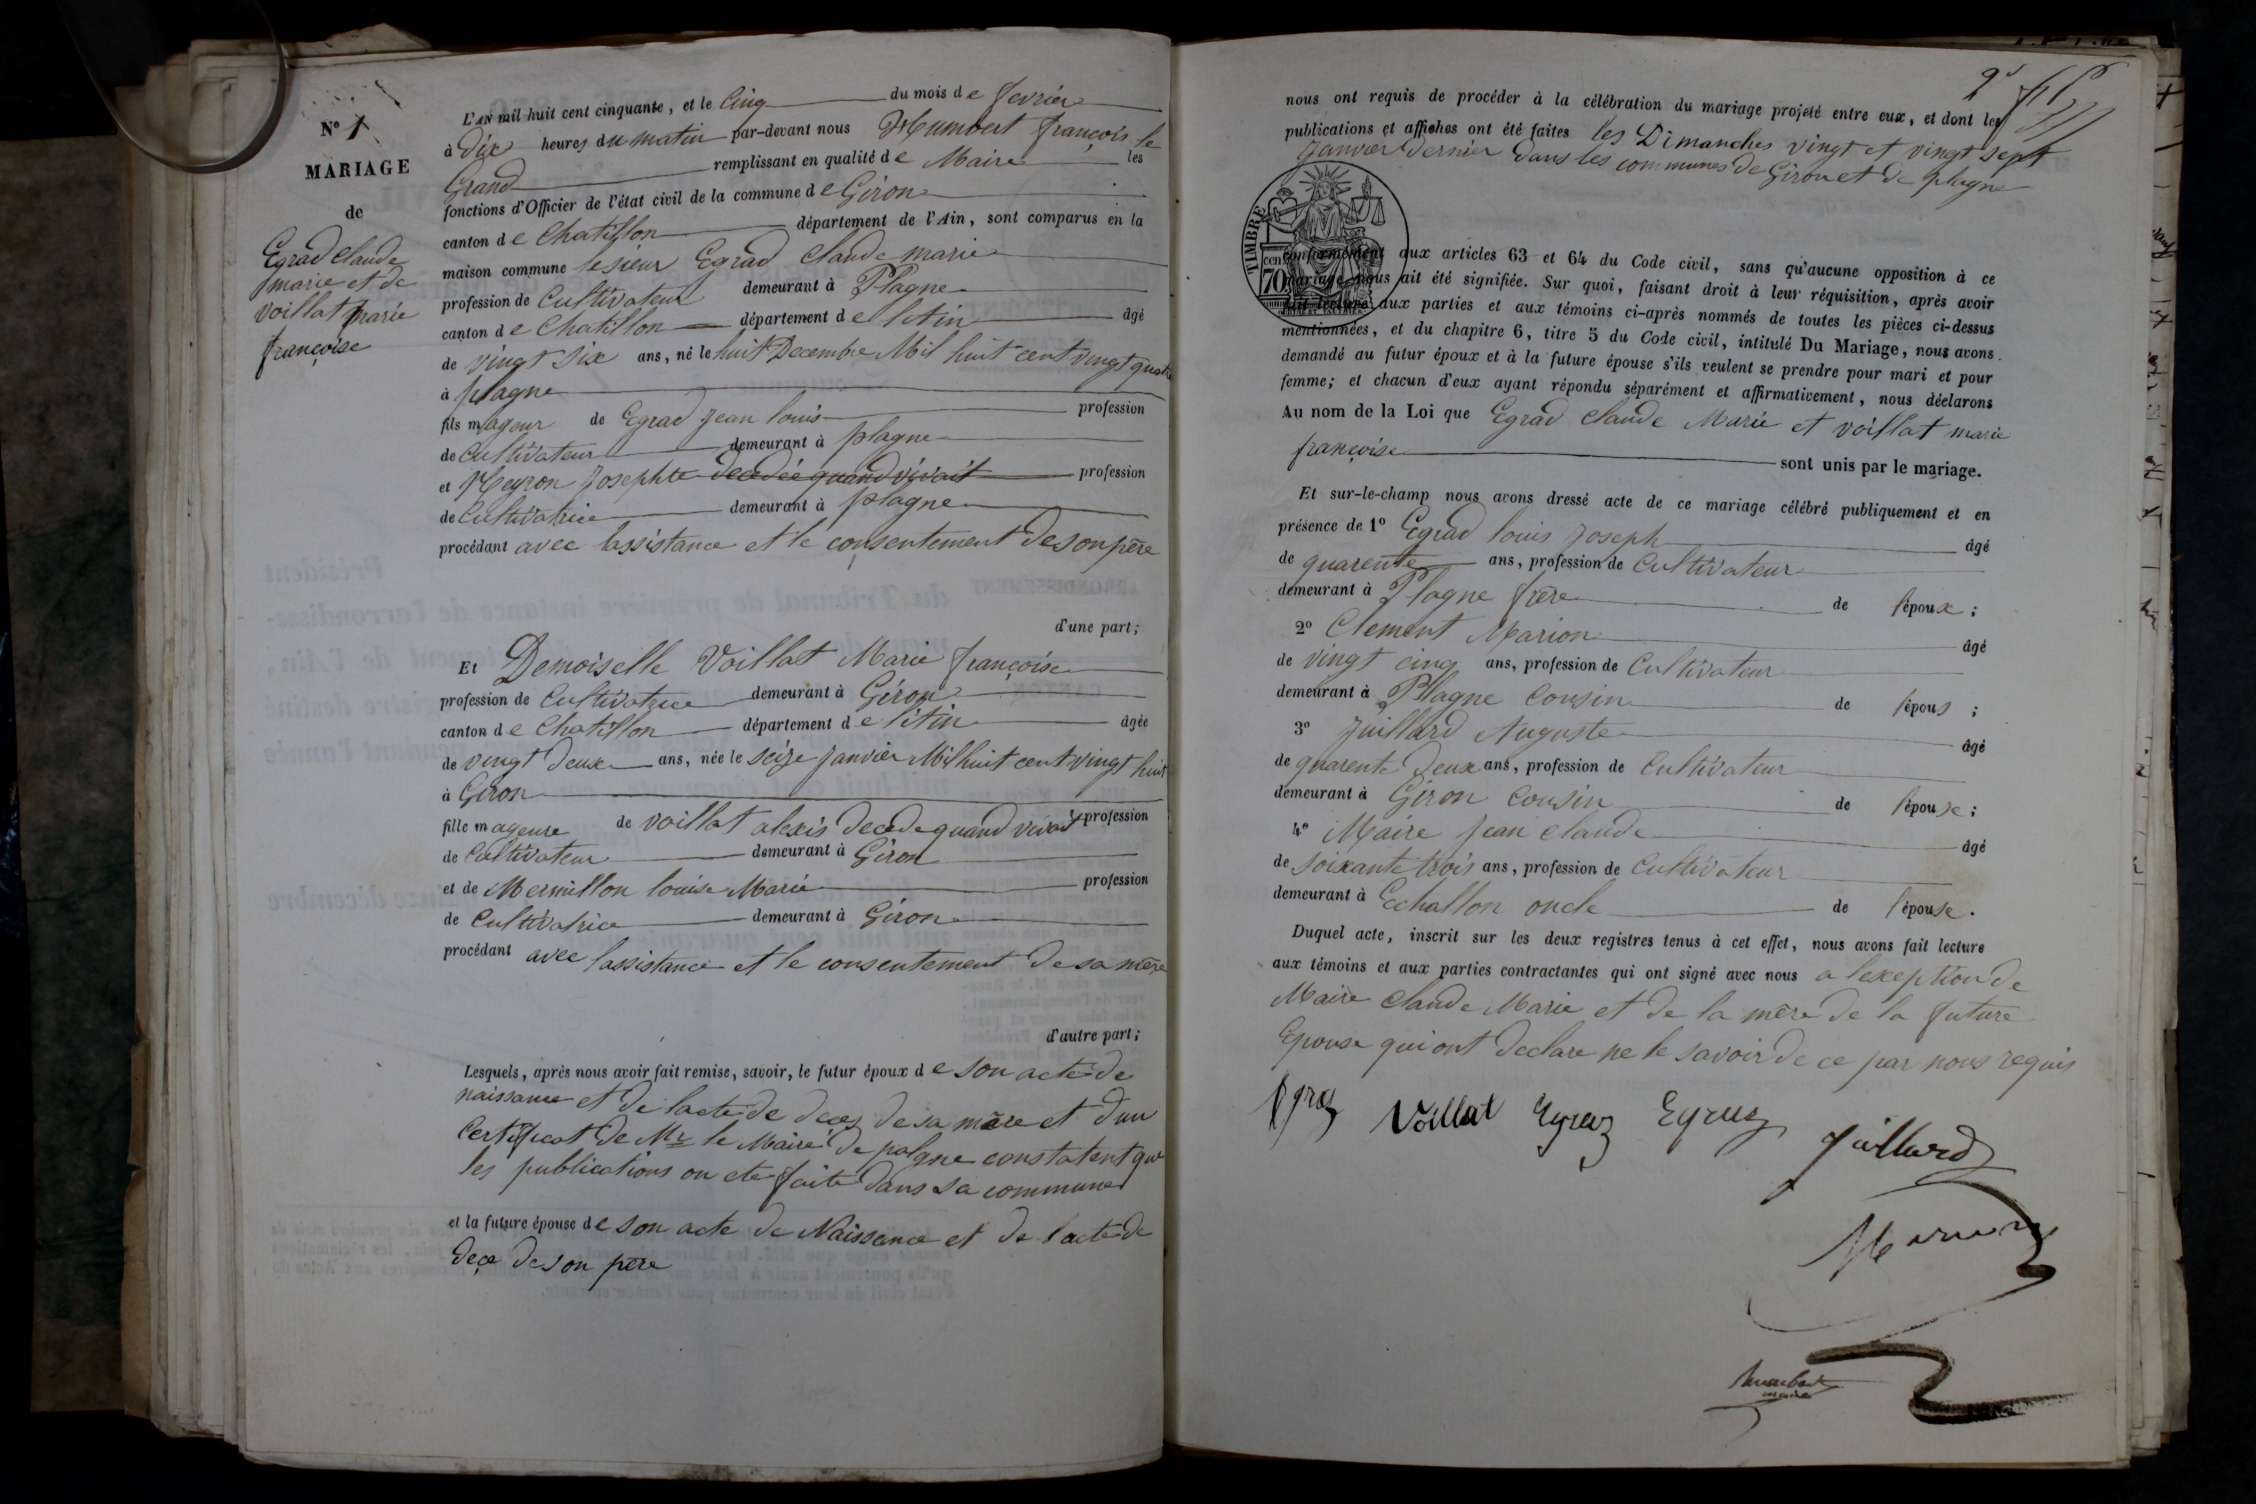 N° 1
MARIAGE
de
Egrad Claude
marie et de
voillat marie
françoise
L'AN mil huit cent cinquante, et le Cinq du mois de fevrier
à Dix heures du matin par-devant nous Humbert françois le
Grand remplissant en qualité de Maire les
fonctions d'Officier de l'état civil de la commune de Giron
canton de Chatillon département de l'Ain, sont comparus en la
maison commune le sieur Egrad Claude marie
profession de Cultivateur demeurant à Plagne
canton de Chatillon département de l'Ain âgé
de vingt six ans, né le huit Decembre Mil huit cent vingt quatre
à plagne
fils mageur de Egrad jean louis profession
de Cultivateur demeurant à plagne
et Meyron Josephte decedée quand vivait profession
de Cultivatrice demeurant à plagne
procédant avec lassistance et le consentement de son père
d'une part;
Et Demoiselle Voillat Marie françoise
profession de Cultivatrice demeurant à Giron
canton de Chatillon département de l'Ain âgée
de vingt deux ans, née le seize janvier Mil huit cent vingt huit
à Giron
fille mageure de voillat alexis decede quand vivait profession
de Cultivateur demeurant à Giron
et de Mermillon louise Marie profession
de Cultivatrice demeurant à Giron
procédant avec lassistance et le consentement de sa mère
d'autre part;
Lesquels, après nous avoir fait remise, savoir, le futur époux de son acte de
naissance et de lacte de deces de sa mère et d'un
Certificat de Mr le Maire de palgne constatent que
les publications on ete faite dans sa commune
et la future épouse de son acte de Naissance et de l'acte de
dece de son père
2
nous ont requis de procéder à la célébration du mariage projeté entre eux, et dont les
publications et affiches ont été faites les Dimanches vingt et vingt sept
Janvier dernier dans les communes de Giron et de plagne
TIMBRE
70 cen
conformément aux articles 63 et 64 du Code civil, sans qu'aucune opposition à ce
mariage nous ait été signifiée. Sur quoi, faisant droit à leur réquisition, après avoir
fait lecture aux parties et aux témoins ci-après nommés de toutes les pièces ci-dessus
mentionnées, et du chapitre 6, titre 5 du Code civil, intitulé Du Mariage, nous avons
demandé au futur époux et à la future épouse s'ils veulent se prendre pour mari et pour
femme; et chacun d'eux ayant répondu séparément et affirmativement, nous déclarons
Au nom de la Loi que Egrad Claude Marie et voillat marie
françoise sont unis par le mariage.
Et sur-le-champ nous avons dressé acte de ce mariage célébré publiquement et en
présence de 1° Egrad louis Joseph âgé
de quarente ans, profession de Cultivateur
demeurant à Plagne frère de l'époux;
2° Clement Marion âgé
de vingt cinq ans, profession de Cultivateur
demeurant à Plagne Cousin de l'épous;
3° Juillard Auguste âgé
de quarente deux ans, profession de Cultivateur
demeurant à Giron Cousin de l'épouse;
4° Maire Jean Claude âgé
de soixante trois ans, profession de Cultivateur
demeurant à Echallon oncle de l'épouse.
Duquel acte, inscrit sur les deux registres tenus à cet effet, nous avons fait lecture
aux témoins et aux parties contractantes qui ont signé avec nous a lexeption de
Maire Claude Marie et de la mère de la future
Epouse qui ont declare ne le savoir de ce par nous requis
Voillat Egraz Egraz
Juillard
Marion
humbert
maire